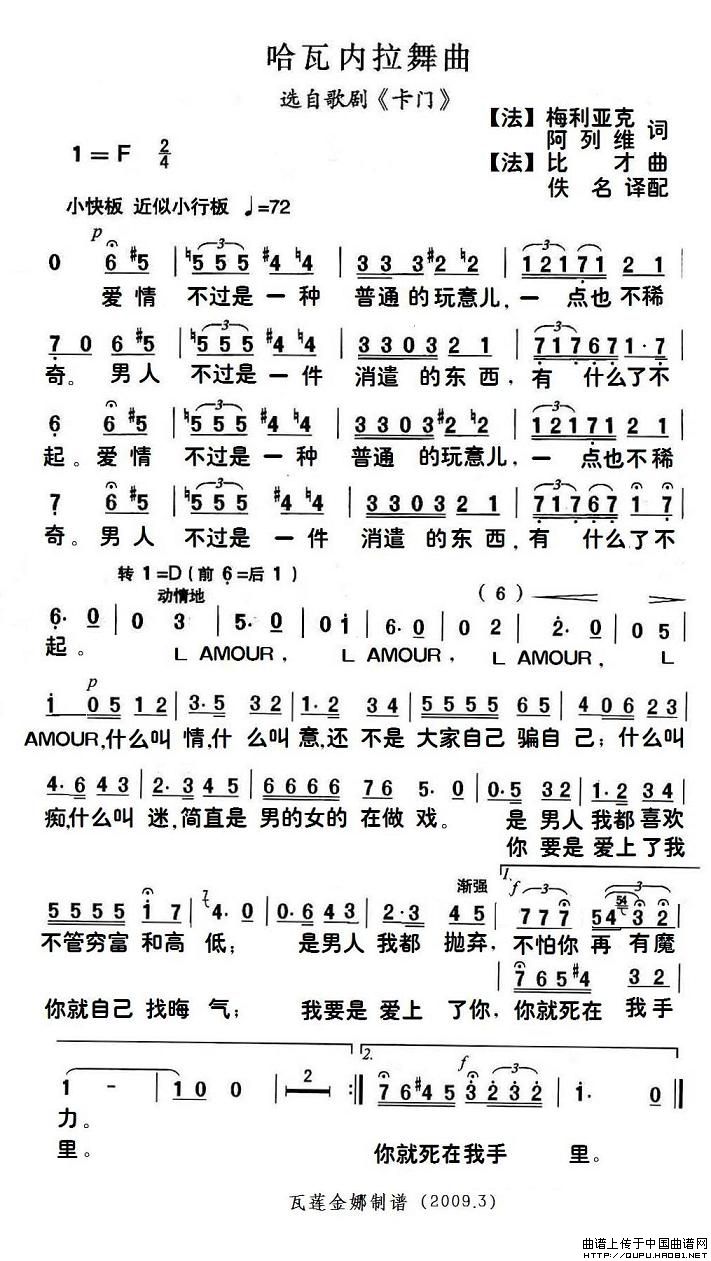 哈瓦内拉舞曲
选自歌剧《卡门》
【法】梅利亚克
阿列维 词
1=F 2/4
【法】比才 曲
佚名 译配
小快板 近似小行板 ♩=72
p
0 6 #5 | ♮5 5 5 #4 ♮4 | 3 3 3 #2 ♮2 | 1 2 1 7 1 2 1 |
爱情 不过是一种 普通的玩意儿,一 点也不稀
7 0 6 #5 | ♮5 5 5 #4 ♮4 | 3 3 0 3 2 1 | 7 1 7 6 7 1· 7 |
奇。男人 不过是一件 消遣 的东西,有 什么了不
6 6 #5 | ♮5 5 5 #4 ♮4 | 3 3 3 #2 ♮2 | 1 2 1 7 1 2 1 |
起。爱情 不过是一种 普通 的玩意儿,一 点也不稀
7 6 #5 | ♮5 5 5 #4 ♮4 | 3 3 0 3 2 1 | 7 1 7 6 7 1 7 |
奇。男人 不过是一件 消遣 的东西,有 什么了不
转 1=D(前 6=后 1)
动情地
(6)
6· 0 | 0 3 | 5· 0 | 0 1 | 6· 0 | 0 2 | 2· 0 | 0 5 |
起。 L AMOUR, L AMOUR, L AMOUR, L
p
1 0 5 1 2 | 3· 5 3 2 | 1· 2 3 4 | 5 5 5 5 6 5 | 4 0 6 2 3 |
AMOUR,什么叫 情,什 么叫 意,还 不是 大家自己 骗自 己;什么叫
4· 6 4 3 | 2· 3 4 5 | 6 6 6 6 7 6 | 5· 0 | 0· 5 3 2 | 1· 2 3 4 |
痴,什么叫 迷,简直是 男的女的 在做 戏。 是 男人 我都喜欢
你 要是 爱上了我
渐强
1.
f
5 5 5 5 1 7 | 4· 0 | 0· 6 4 3 | 2· 3 4 5 | 7 7 7 5 4 3 2 |
不管穷富 和高 低; 是男人 我都 抛弃,不怕你 再 有魔
7 6 5 #4 3 2 |
你就自己 找晦 气; 我要是 爱上 了你,你就死在 我手
2.
f
1 - | 1 0 0 | 2 :| 7 6 #4 5 3 2 3 2 | 1· 0 ‖
力。
里。 你就死在我手 里。
瓦莲金娜制谱 (2009.3)
曲谱上传于中国曲谱网
HTTP://QUPU.HAO81.NET